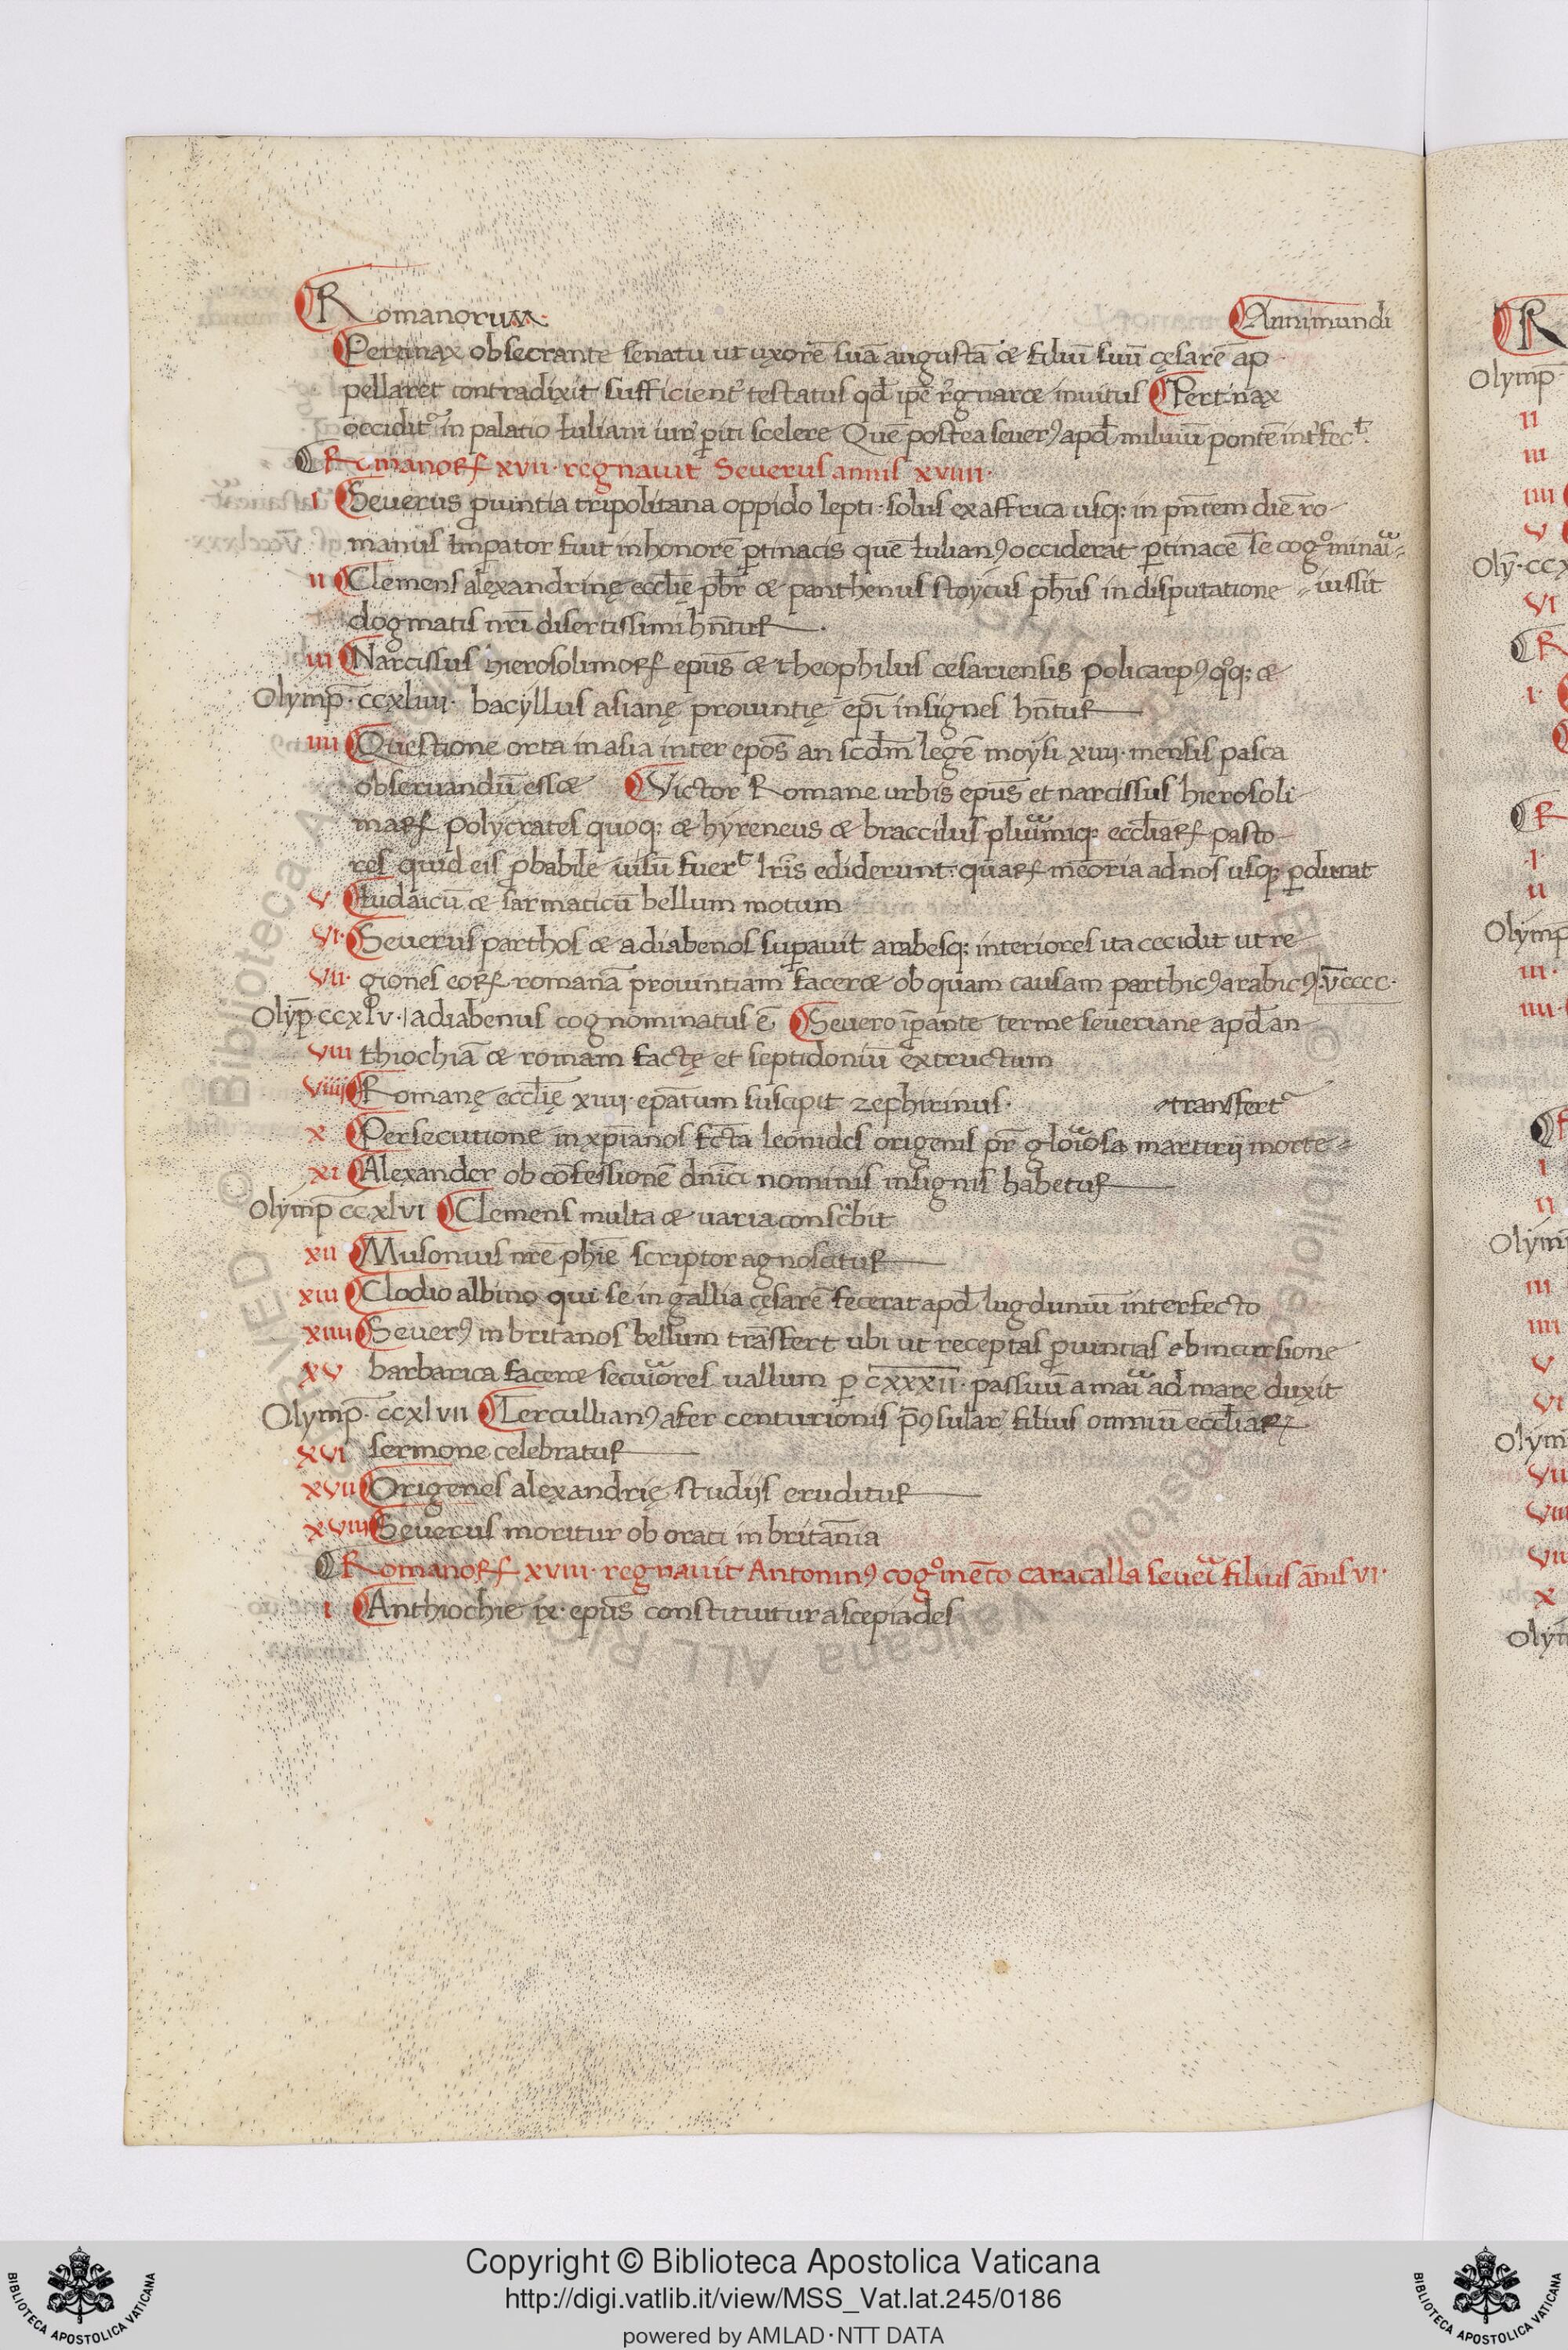 Romanorum Anni mundi
Pertinax obsecrante senatu ut uxorē suā augustā & filiū suū cęsarē ap
pellaret contradixit sufficient᷑ testatus qđ ipē regnar& inuitus Pertinax
occidit᷑ in palatio Iuliani iur̄ ꝑiti scelere Quē postea seuerꝰ apđ miluiū pontē int᷑fecᵗ.
Romanorꝝ xvii· regnauit Seuerus annis xviiii·
i Seuerus ꝓuintia tripolitana oppido lepti· solus ex affrica usq; in pn̄tem diē ro
manus Imꝑator fuit in honorē ꝑtinacis quē Iulianꝰ occiderat ꝑtinacē se cogºminaī
ii Clemens alęxandrinę eccl̄ię pb̄r & panthenus stoycus ph̄us in disputatione iussit
dogmatis nr̄i disertissimi hn̄tur
iii Narcissus hierosolimorꝝ ep̄us & theophilus cesariensis policarpꝰ qºq; &
Olymp̄· ccxliiii· bacyllus asianę prouintię ep̄i insignes hn̄tur
iiii Questione orta in asia inter ep̄os an scđm legē moysi xiiij· mensis pasca
obseruandū ess& Victor Romane urbis ep̄us et narcissus hierosoli
marꝝ polycrates quoq; & hyreneus & braccilus plurimiq; eccl̄iarꝝ pasto
res quid eis ꝓbabile uisū fuerᵗ lr̄is ediderunt· quarꝝ meōria ad nos usq; ꝑdurat
v Iudaicū & sarmaticū bellum motum
vi· Seuerus parthos & adiabenos suꝑauit arabesq; interiores ita cecidit ut re
vii· giones eorꝝ romanā prouintiam facer& ob quam causam parthicꝰ arabicꝰ v̄cccc·
Olyp̄· ccxlv· adiabenus cognominatus ē Seuero iꝑante terme seueriane apđ an
viii thiochiā & romam factę et septidoniū extructum
viiii Romanę eccl̄ię xiiij· ep̄atum suscipit zephirinus· transfert᷑
x Persecutione in xp̄ianos fc̄ta leonides origenis pr̄ gloriosa martirij morte
xi Alexander ob cōfessionē dn̄ici nominis insignis habetur
Olymp̄ ccxlvi Clemens multa & uaria conscͥbit
xii Musonius nr̄e phīe scriptor agnoscitur
xiii Clodio albino qui se in gallia cęsarē fecerat apđ lugduniū interfecto
xiiii Seuerꝰ in britanos bellum trāsfert ubi ut receptas ꝓuintias ab incursione
xv barbarica facer& securiores uallum ꝑ cxxxii· passuū a mari ad mare duxit
Olymp̄· ccxlvii Tercullianꝰ afer centurionis p̄ꝰsular̄ filius omniū eccl̄iarꝝ
xvi sermone celebratur
xvii Origenes alęxandrię studijs eruditur
xviii Seuerus moritur oborati in britānia
Romanorꝝ xviii· regnauit Antoninꝰ cogºmēto caracalla seueri filius ānis vi·
i Anthiochie ix· ep̄us constituitur ascepiades
R
Olymp̄
ii
iii
iiii
v
Oly̅· ccx
vi
R
i·
R
·i·
ii
Olymp̄
iii·
iiii·
i
ii
Olym
iii
iiii
v
vi
Olym
vii
viii
viii
x
Olym̄
Copyright © Biblioteca Apostolica Vaticana
http://digi.vatlib.it/view/MSS_Vat.lat.245/0186
powered by AMLAD·NTT DATA
BIBLIOTECA APOSTOLICA VATICANA
BIBLIOTECA APOSTOLICA VATICANA